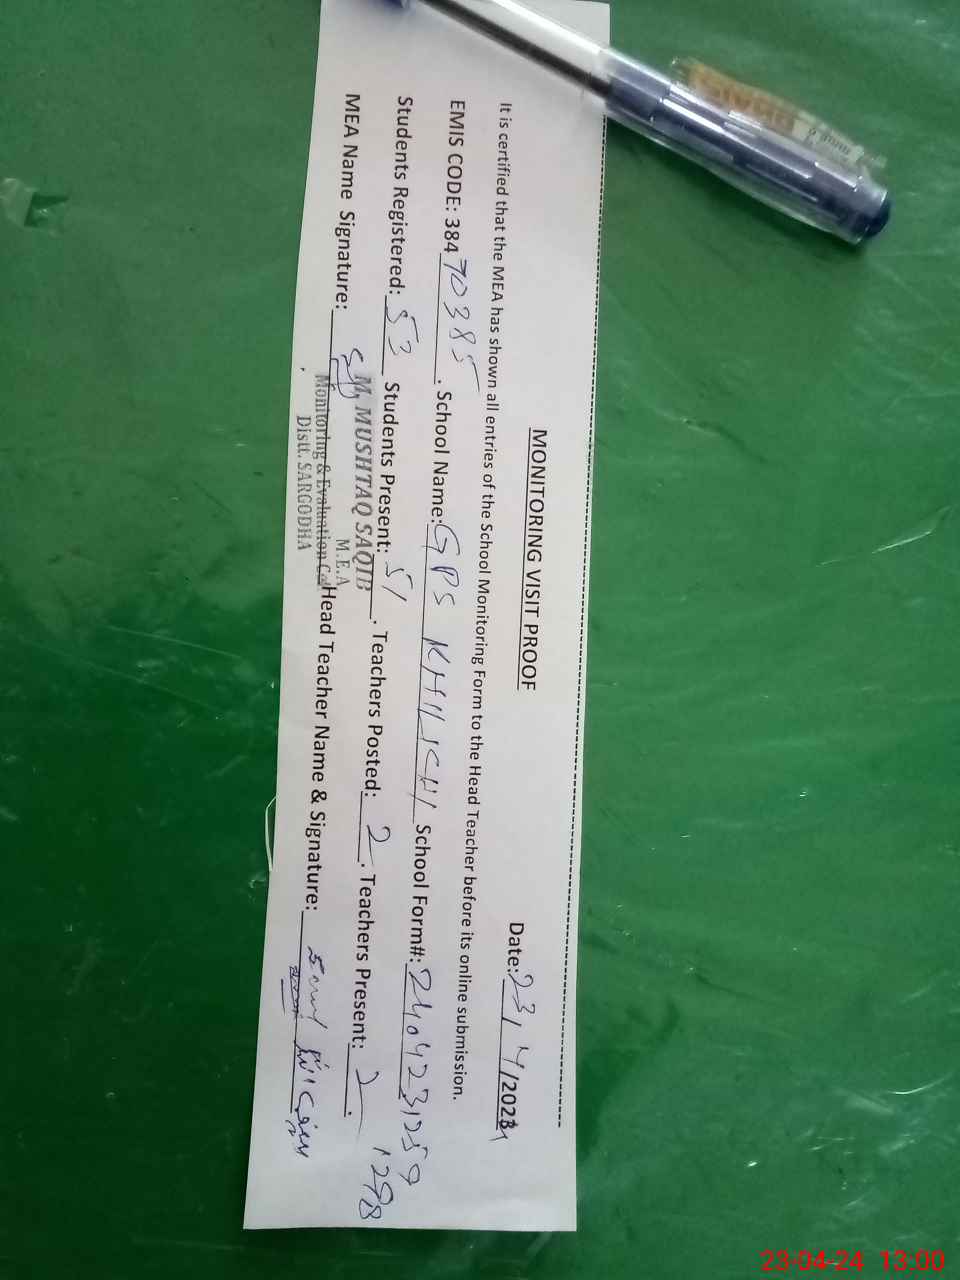 MONITORING VISIT PROOF
Date: 23/4/2024
It is certified that the MEA has shown all entries of the School Monitoring Form to the Head Teacher before its online submission.
EMIS CODE: 38470385. School Name: GPS KHILICHI School Form#: 240423,259
Students Registered: 53 Students Present: 51. Teachers Posted: 2. Teachers Present: 2.
MEA Name Signature: Head Teacher Name & Signature:
M. MUSHTAQ SAQIB
M.E.A
Monitoring & Evaluation
Distt. SARGODHA
23-04-24 13:00